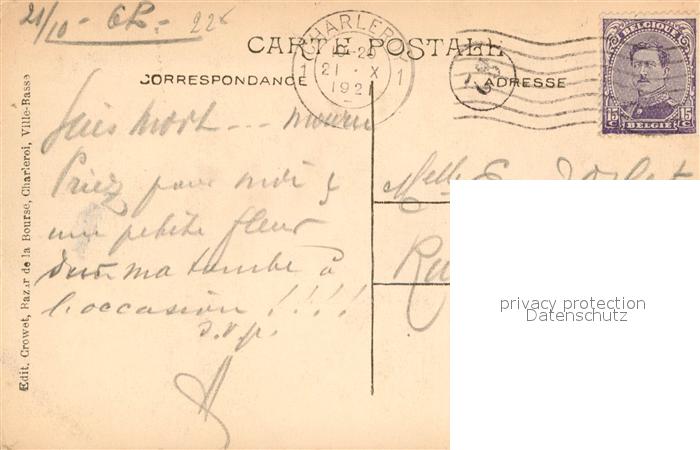 21/10 - 
CHARLEROI
1 21 · X 1
1921
CARTE POSTALE
CORRESPONDANCE
ADRESSE
BELGIQUE
15 C 15 C
BELGIË
Suis mort --- 
Priez pour moi &
une petite fleur
sur ma tombe à
l'occasion !!!!
s.v.p.
Melle
Edit. Crowet, Bazar de la Bourse, Charleroi, Ville-Basse
privacy protection
Datenschutz